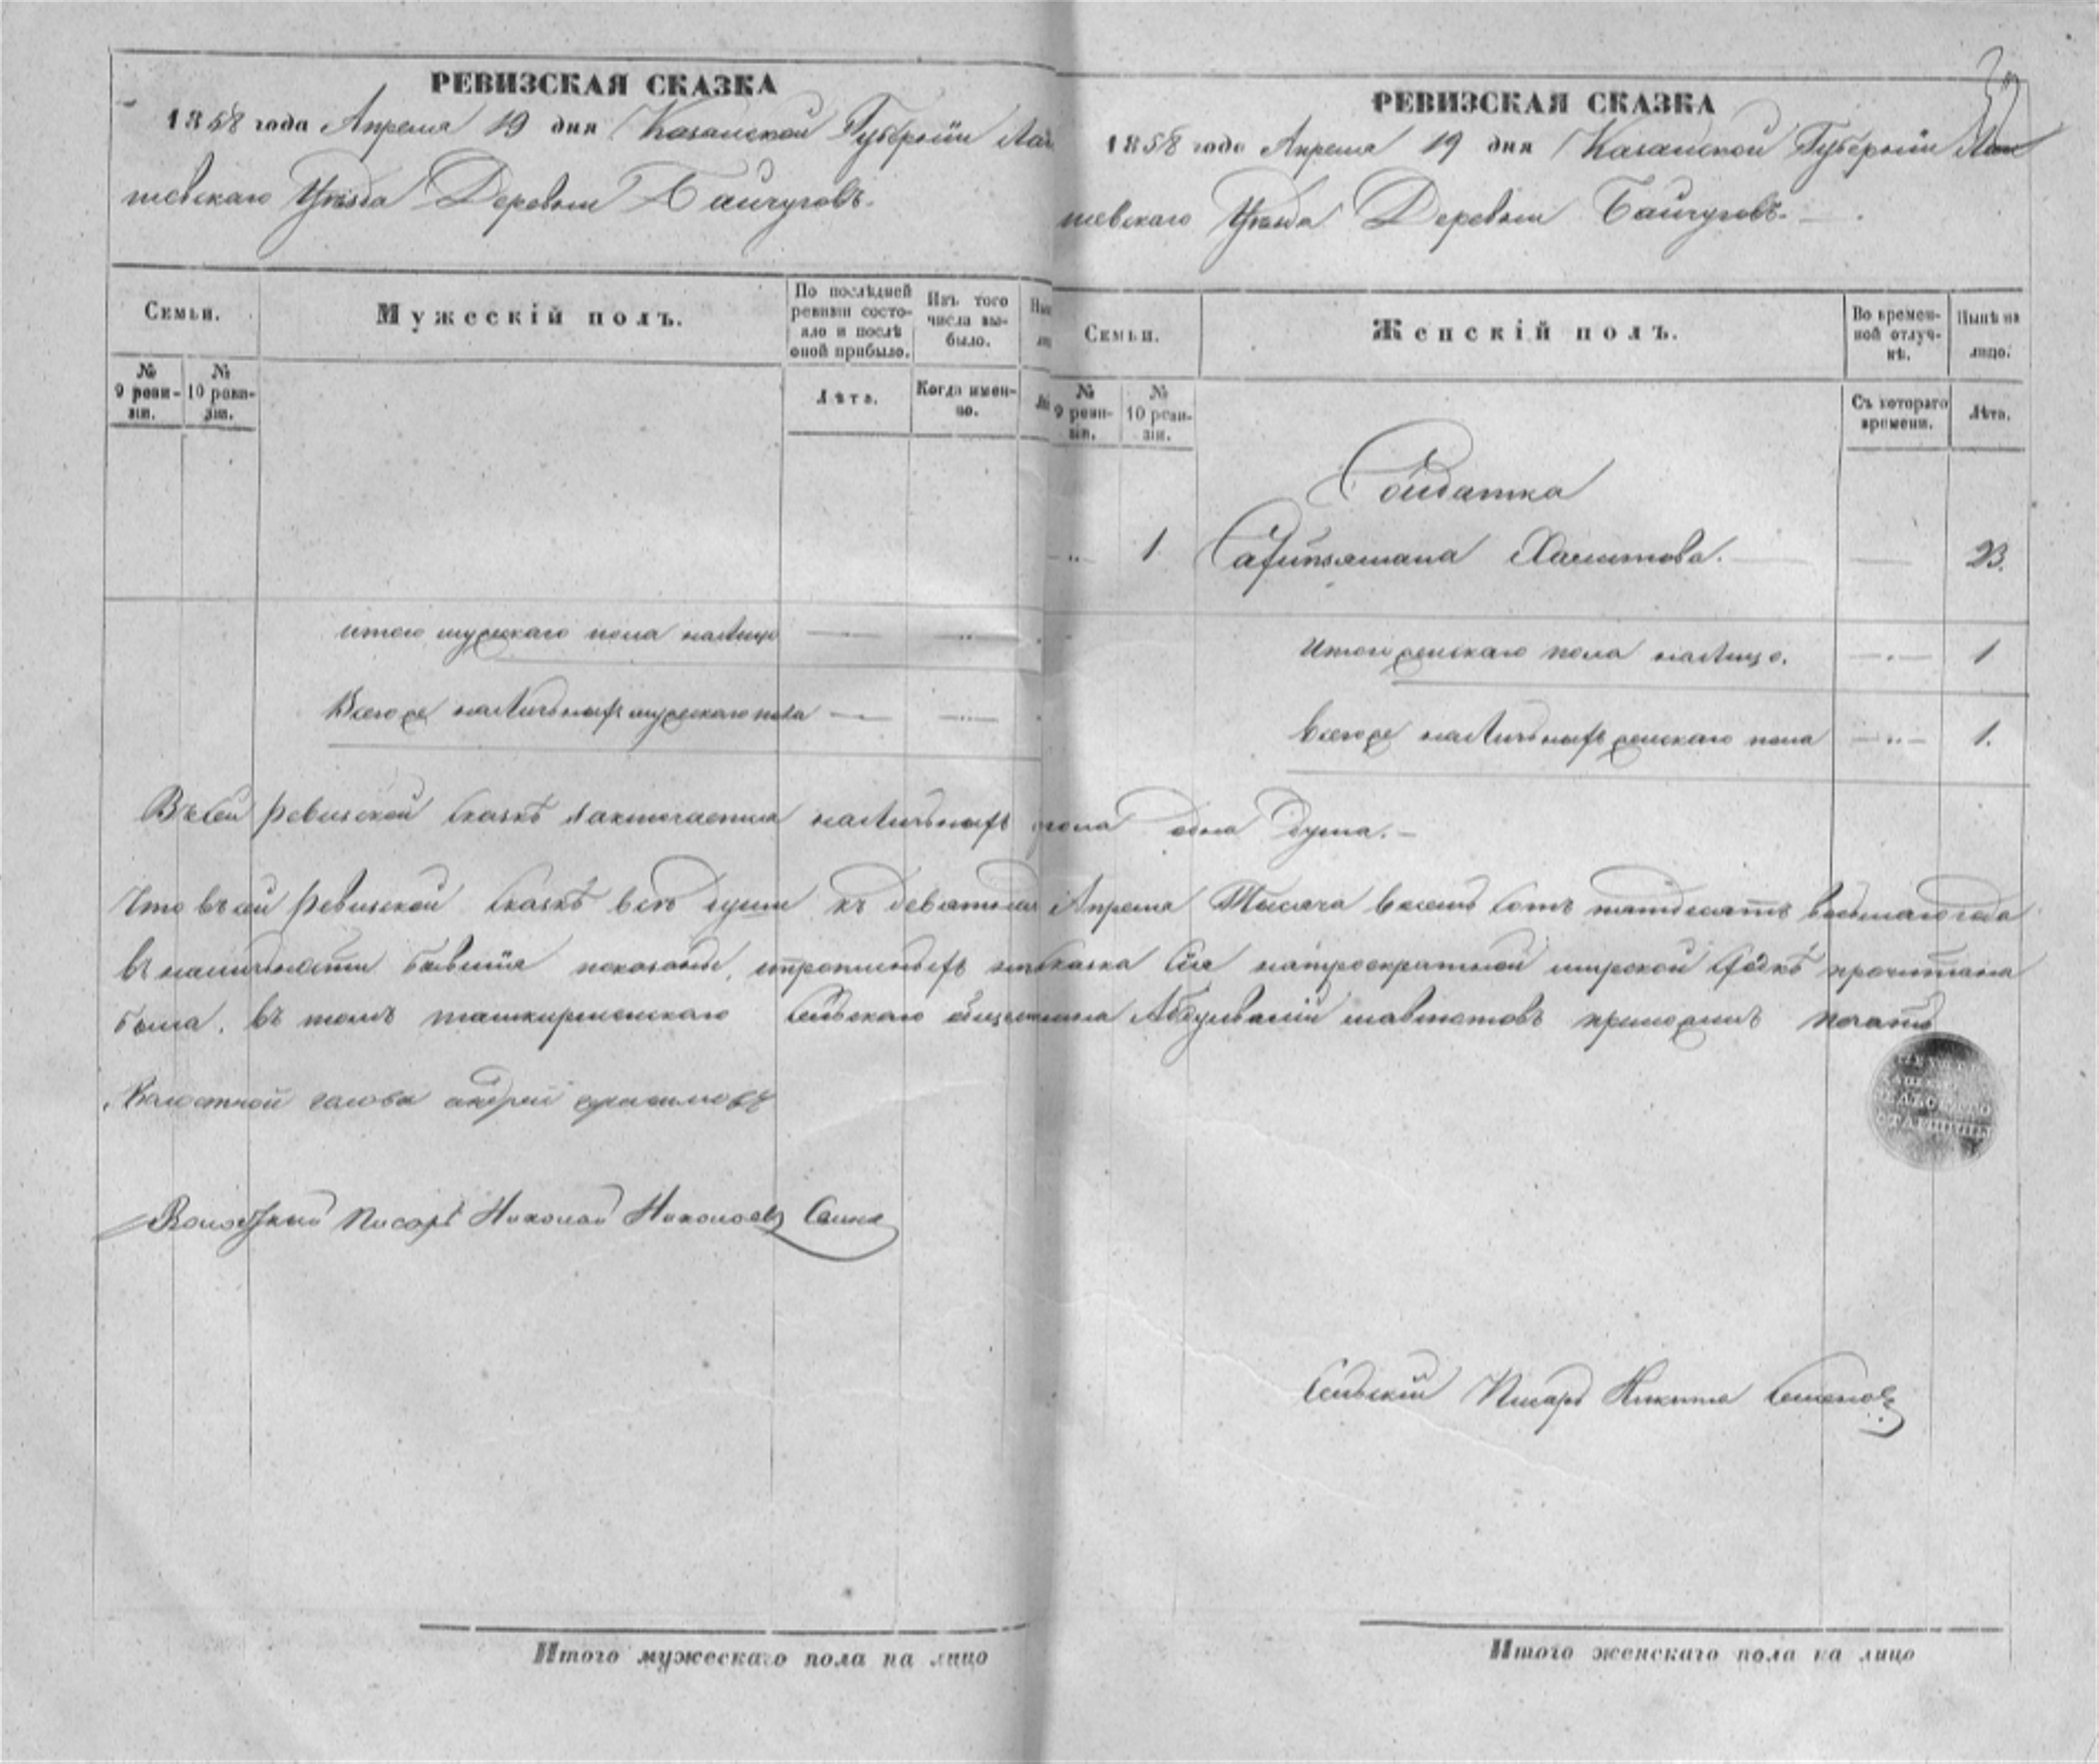 РЕВИЗСКАЯ СКАЗКА
1858 года Апреля 19 дня Казанской Губернiи Лаи
шевскаго Уѣзда Деревни Баичуговъ.
Семьи.
Мужескiй полъ.
По послѣдней ревизiи состояло и послѣ оной прибыло.
Изъ того числа выбыло.
№ 9 ревизiи.
№ 10 ревизiи.
Лѣта.
Когда именно.
итого мужскаго пола налицо
Всегоже наличныхъ мужескаго пола
РЕВИЗСКАЯ СКАЗКА
1858 года Апреля 19 дня Казанской Губернiи Лаи
шевскаго Уѣзда Деревни Баичуговъ.
Семьи.
Женскiй полъ.
Во временной отлучкѣ.
Нынѣ на лицо.
№ 9 ревизiи.
№ 10 ревизiи.
Съ котораго времени.
Лѣта.
Солдатка
1 Халитова. 23.
Итого женскаго пола налицо. 1
Всегоже наличныхъ женскаго пола 1.
Въ сей Ревизской Сказкѣ Заключается наличныхъ одна душа.
Что въ сей Ревизской Сказкѣ всѣ души къ Апреля Тысяча восемь сотъ пятдесятъ восьмаго года
въ наличности бывшiя показаны, сказка Сiя мирской прочитана
была. въ томъ ташкирменскаго Сельскаго Абдулвалiй приложилъ печать
Волостной голова андрей
Волостный Писарь Николай Николаевъ
СЕЛЬСКАГО
СТАРШИНЫ
Сельскiй Писарь Никита Семеновъ
Итого мужескаго пола на лицо
Итого женскаго пола на лицо